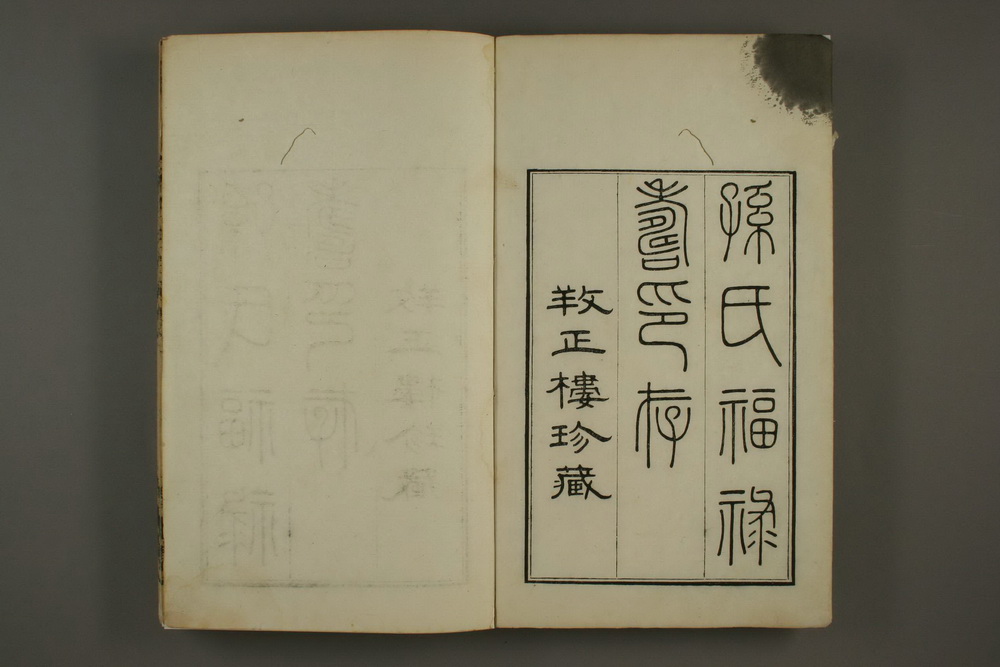 孫氏福祿
壽印存
𢼝正樓珍藏